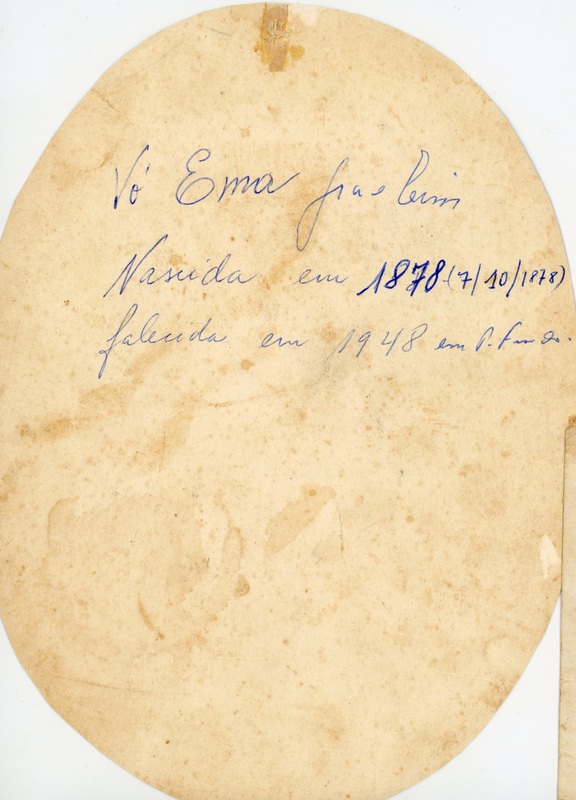 Vó Ema
Nascida em 1878 (7/10/1878)
falecida em 1948 em P. Fundo.